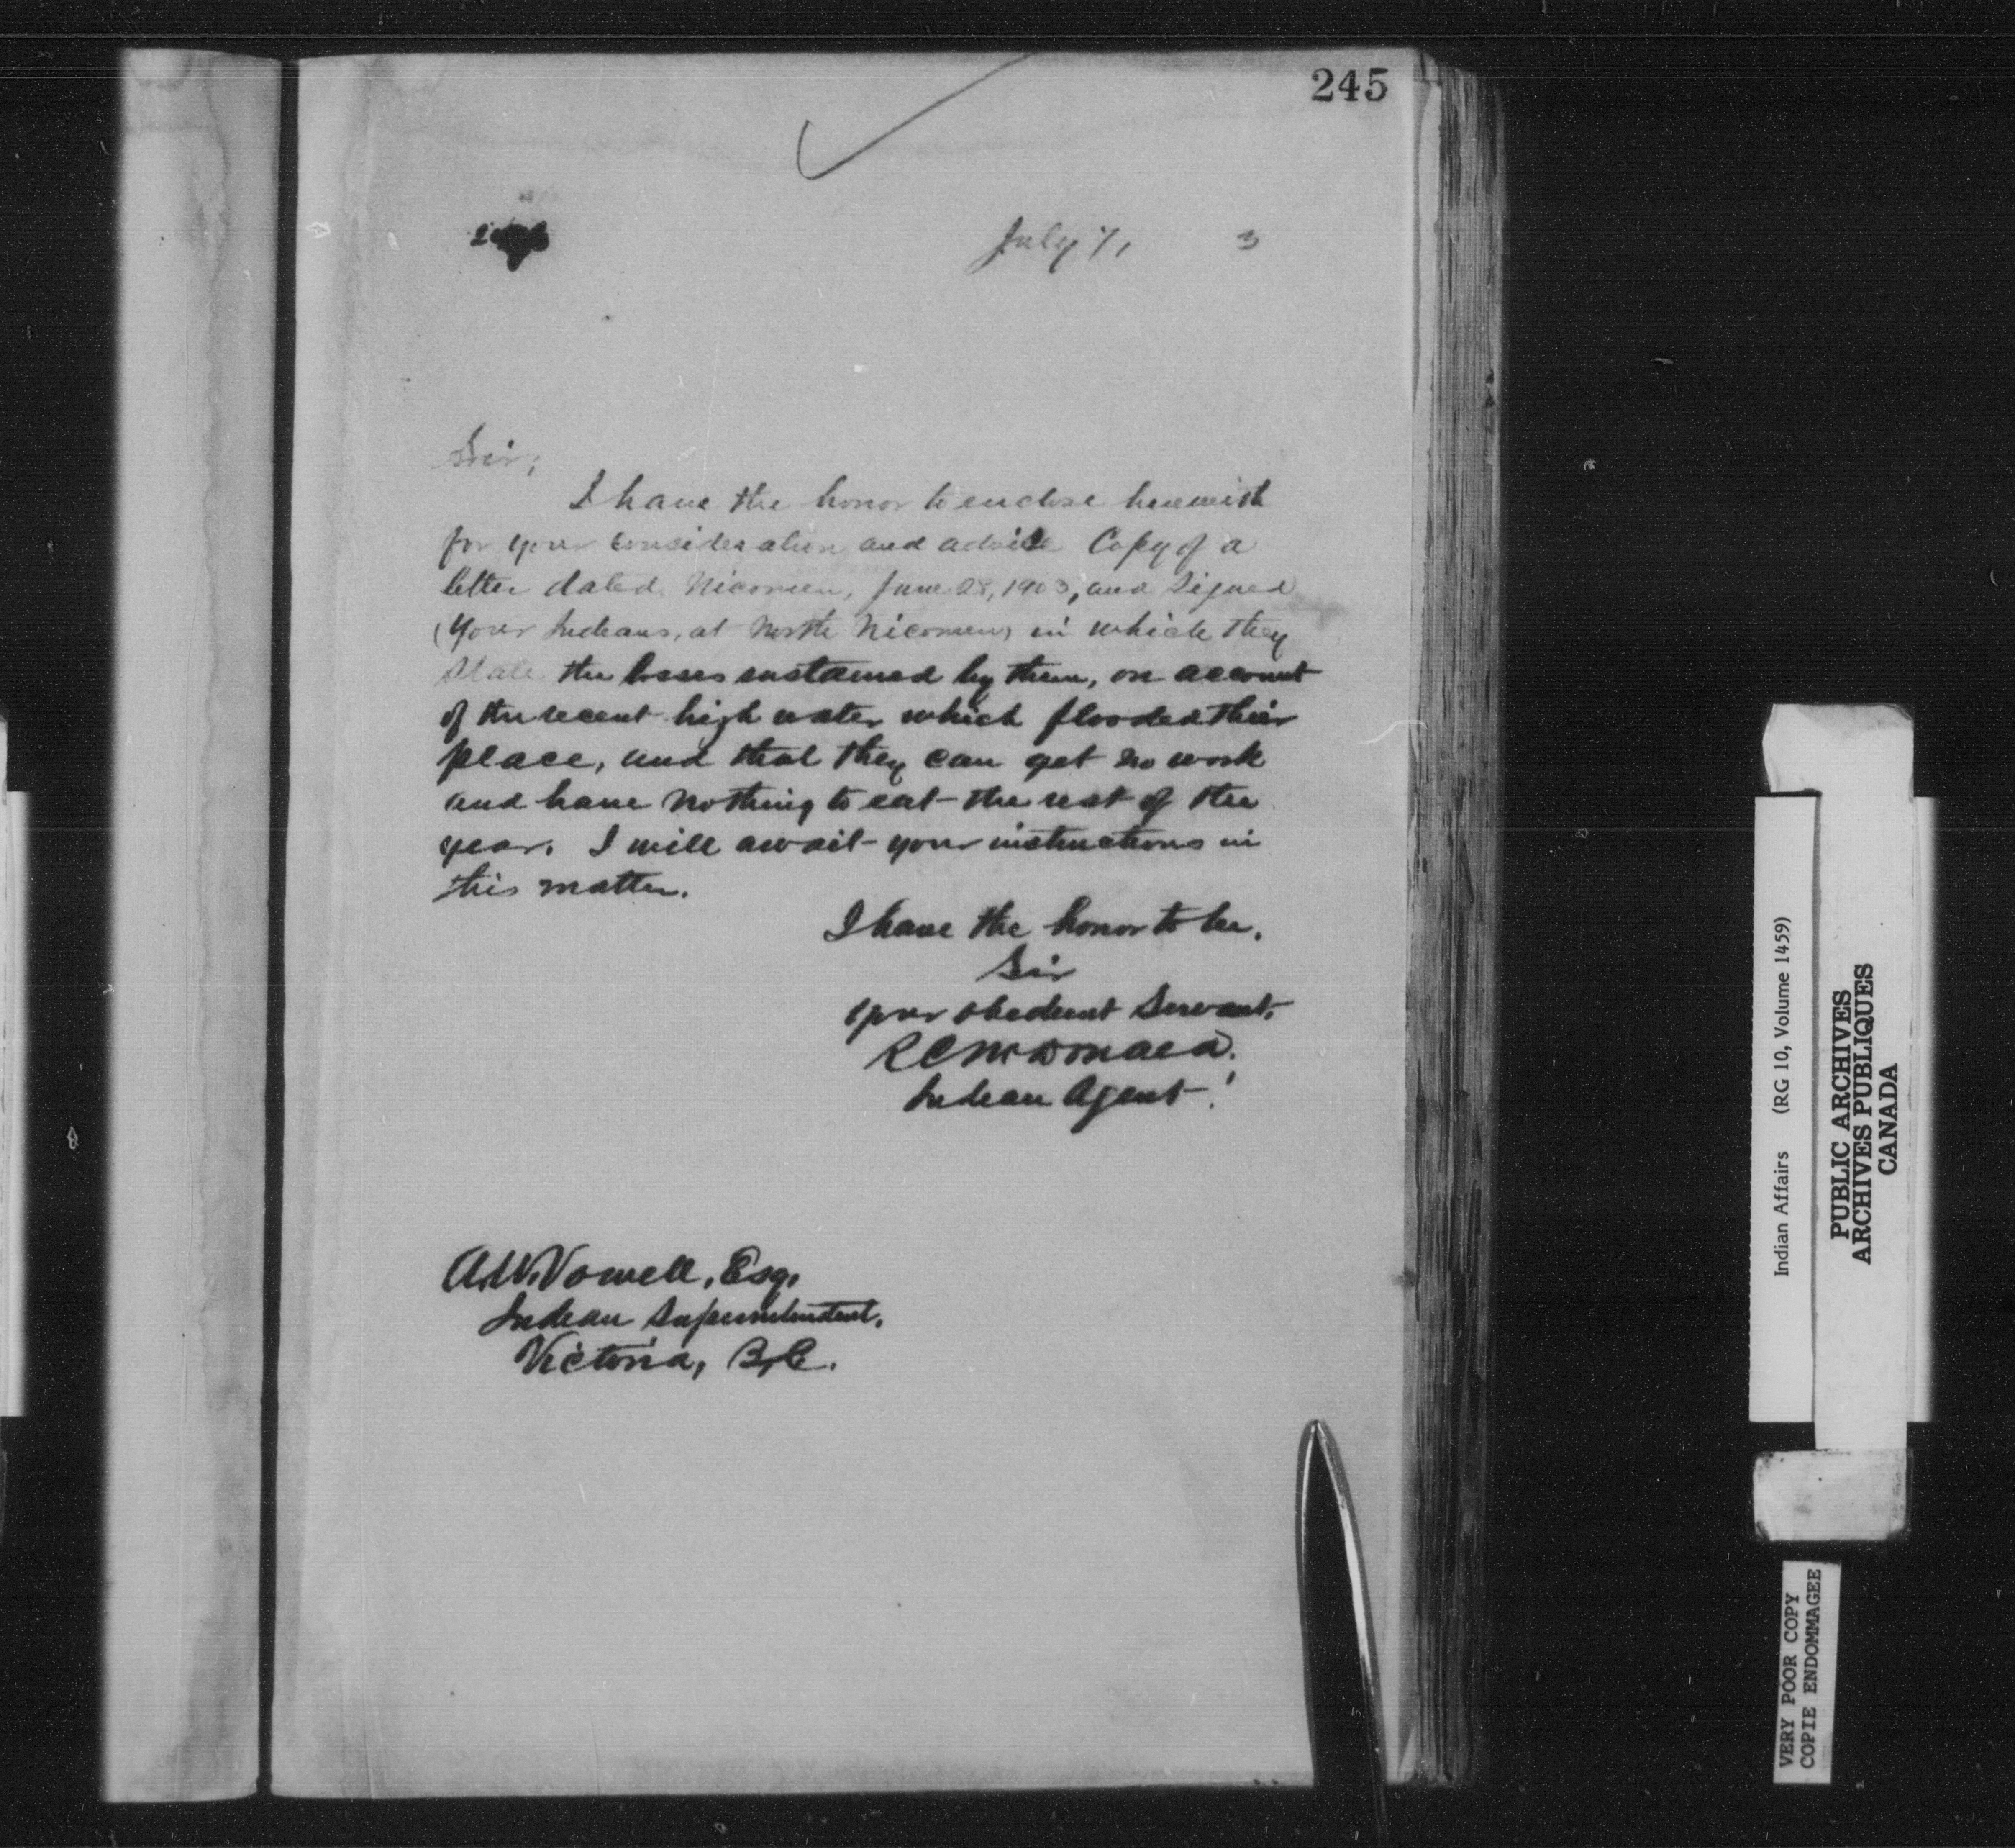 245
July 7, 3
Sir;
I have the honor to enclose herewith
for your consideration and advice Copy of a
letter dated Nicomen, June 28, 1903, and Signed
(Your Indians, at North Nicomen) in which they
State the losses sustained by them, on account
of the recent high water which flooded their
place, and that they can get no work
and have nothing to eat the rest of the
year. I will await your instructions in
this matter.
I have the honor to be,
Sir
Your obedient Servant,
R C McDonald.
Indian Agent.
A.W. Vowell, Esq.
Indian Superintendent,
Victoria, B.C.
Indian Affairs (RG 10, Volume 1459)
PUBLIC ARCHIVES
ARCHIVES PUBLIQUES
CANADA
VERY POOR COPY
COPIE ENDOMMAGEE